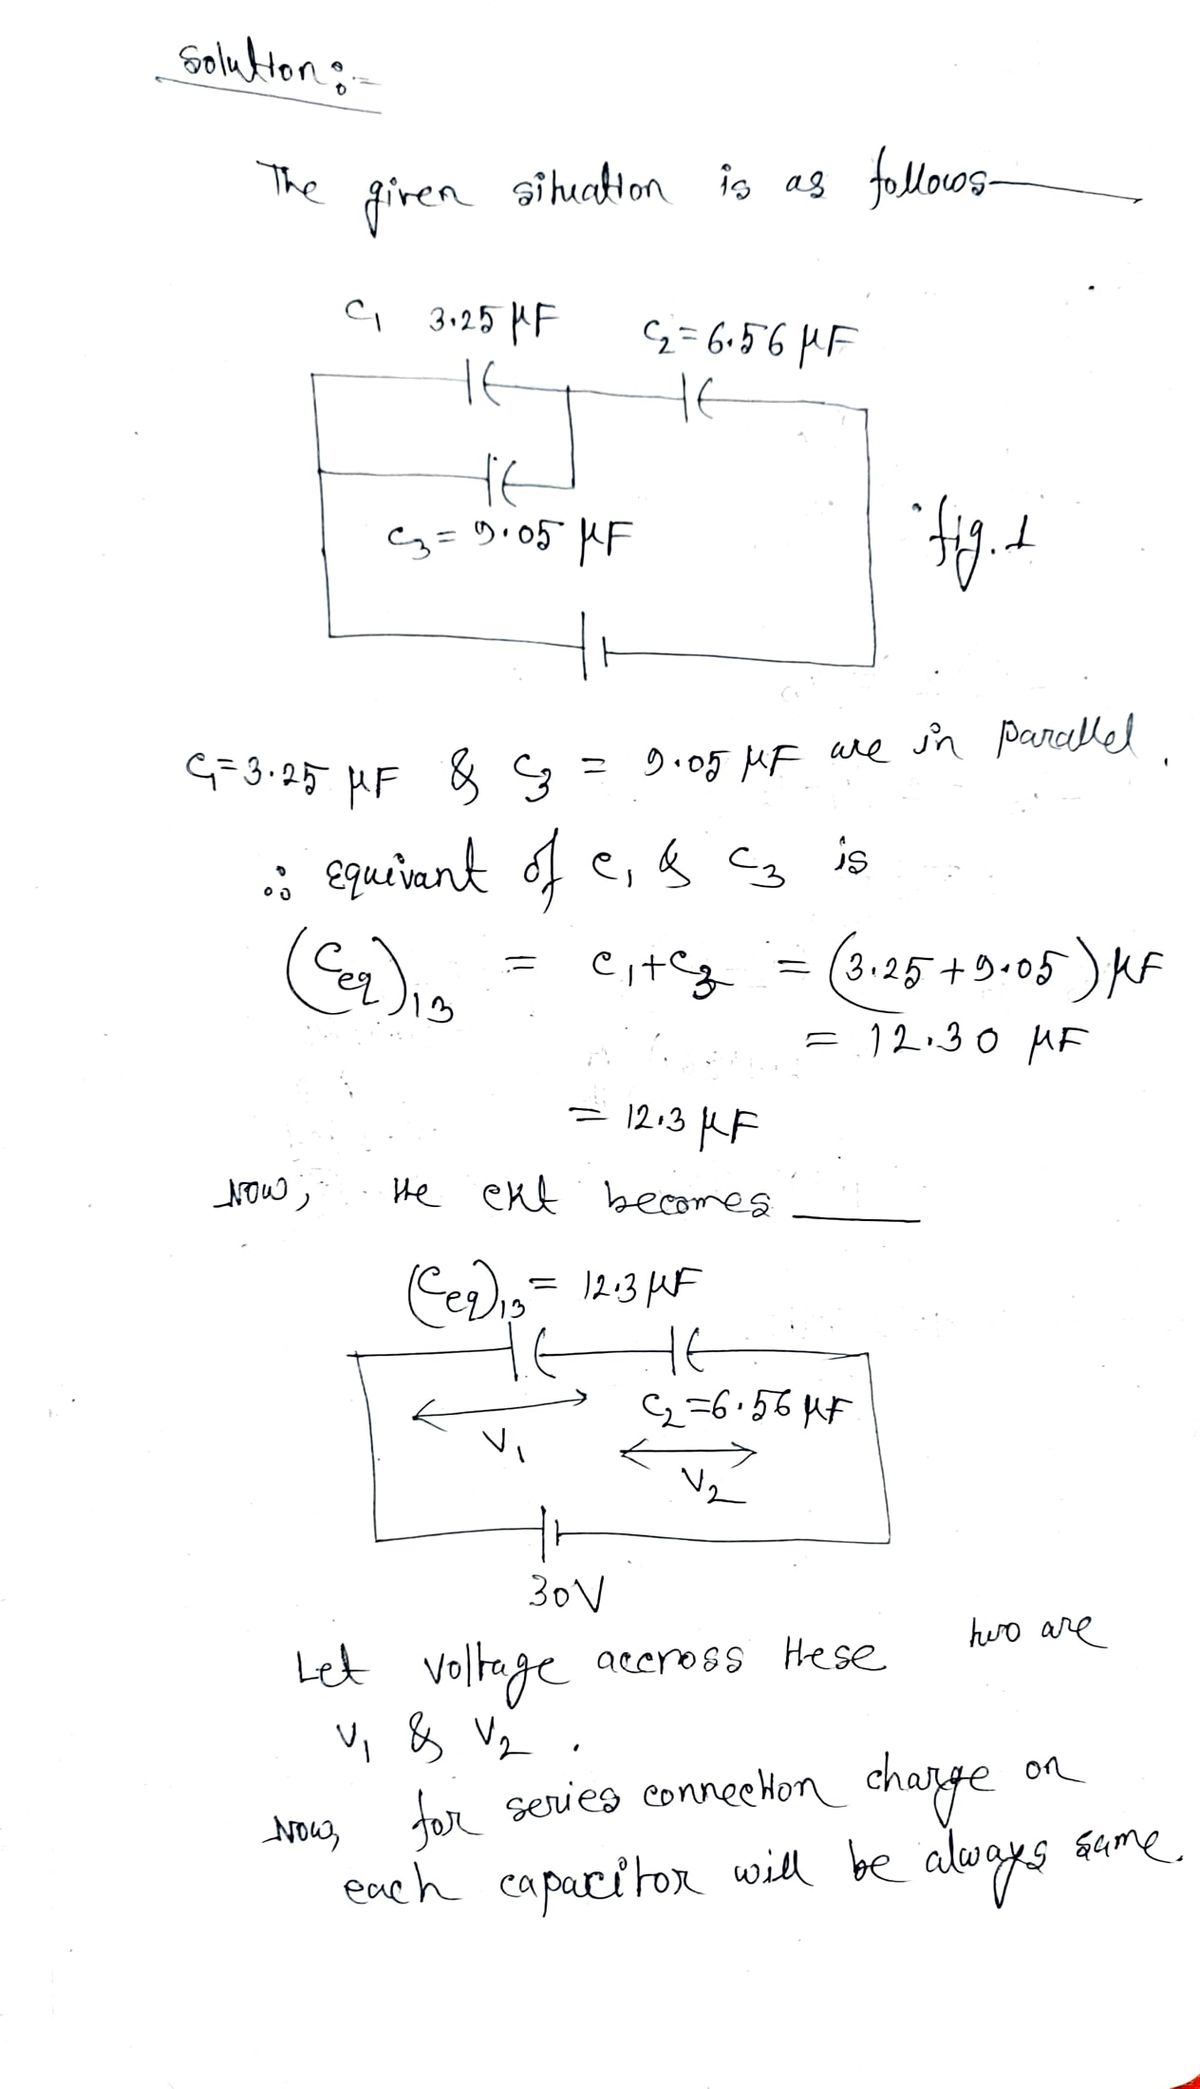 Solution:-
The given situation is as follows-
C₁ 3.25 μF C₂ = 6.56 μF
C₃ = 9.05 μF
fig. 1
C₁ = 3.25 μF & C₃ = 9.05 μF are in parallel.
∴ equivant of C₁ & C₃ is
(Ceq)₁₃ = C₁+C₃ = (3.25 + 9.05) μF
= 12.30 μF
= 12.3 μF
Now, the ckt becomes
(Ceq)₁₃ = 12.3 μF
C₂ = 6.56 μF
V₁
V₂
30V
Let voltage accross these two are
V₁ & V₂ .
Now, for series connection charge on
each capacitor will be always same.